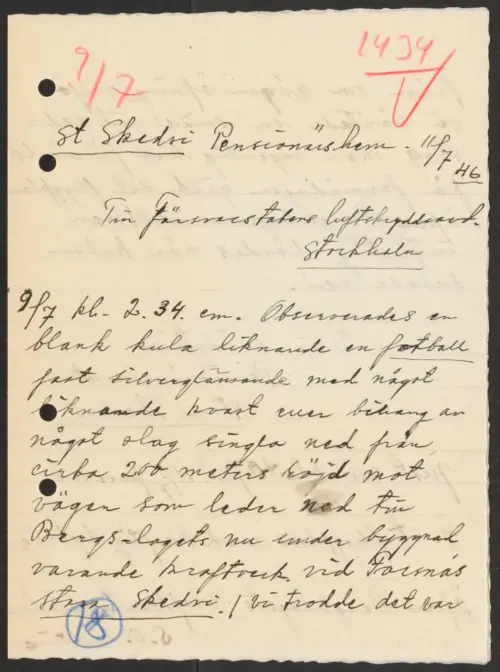 9/7
1434
St Skedvi Pensionärshem. 11/7 46
Till Försvarsstabens luftskyddsavd.
Stockholm
9/7 kl. 2.34. em. Observerades en
blank kula liknande en fotball
fast silverglänsande med något
liknande kvast eller bihang av
något slag singla ned från
cirka 200 meters höjd mot
vägen som leder ned till
Bergs-lagets nu under byggnad
varande kraftverk vid Forsnäs
Stora Skedvi. / vi trodde det var
18